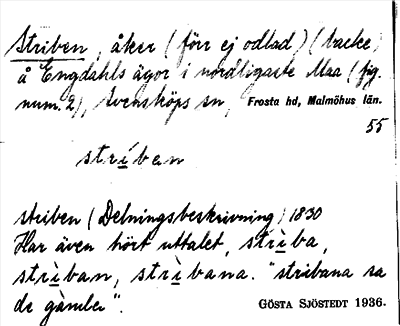 Striben, åker (förr ej odlad) (backe)
å Engdahls ägor i nordligaste Maa (fig.
num. 2), Svensköps sn, Frosta hd, Malmöhus län.
55
strìban
striben (Delningsbeskrivning) 1830
Har även hört uttalet, strìba,
strìban, strìbana. "stribana sa
de gàmler".
GÖSTA SJÖSTEDT 1936.